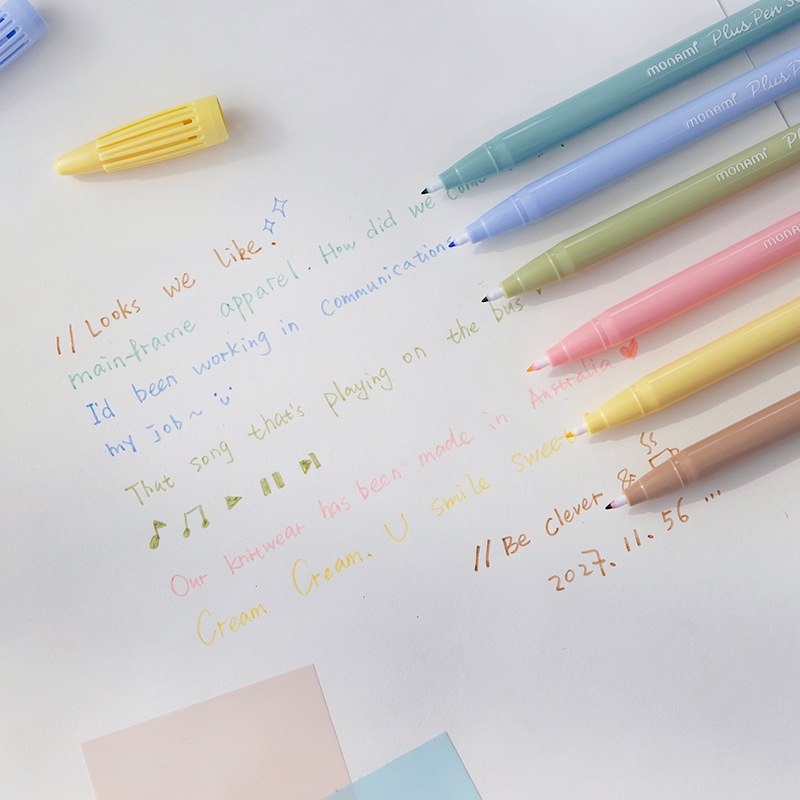 monami Plus Pen
monami Plus P
monami Pl
monam
// Looks we like.
mainframe apparel. How did we come
I'd been working in communications
my job~
That song that's playing on the bus
Our knitwear has been made in Australia
Cream Cream. U smile sweet
// Be clever &
2027. 11. 56 ...